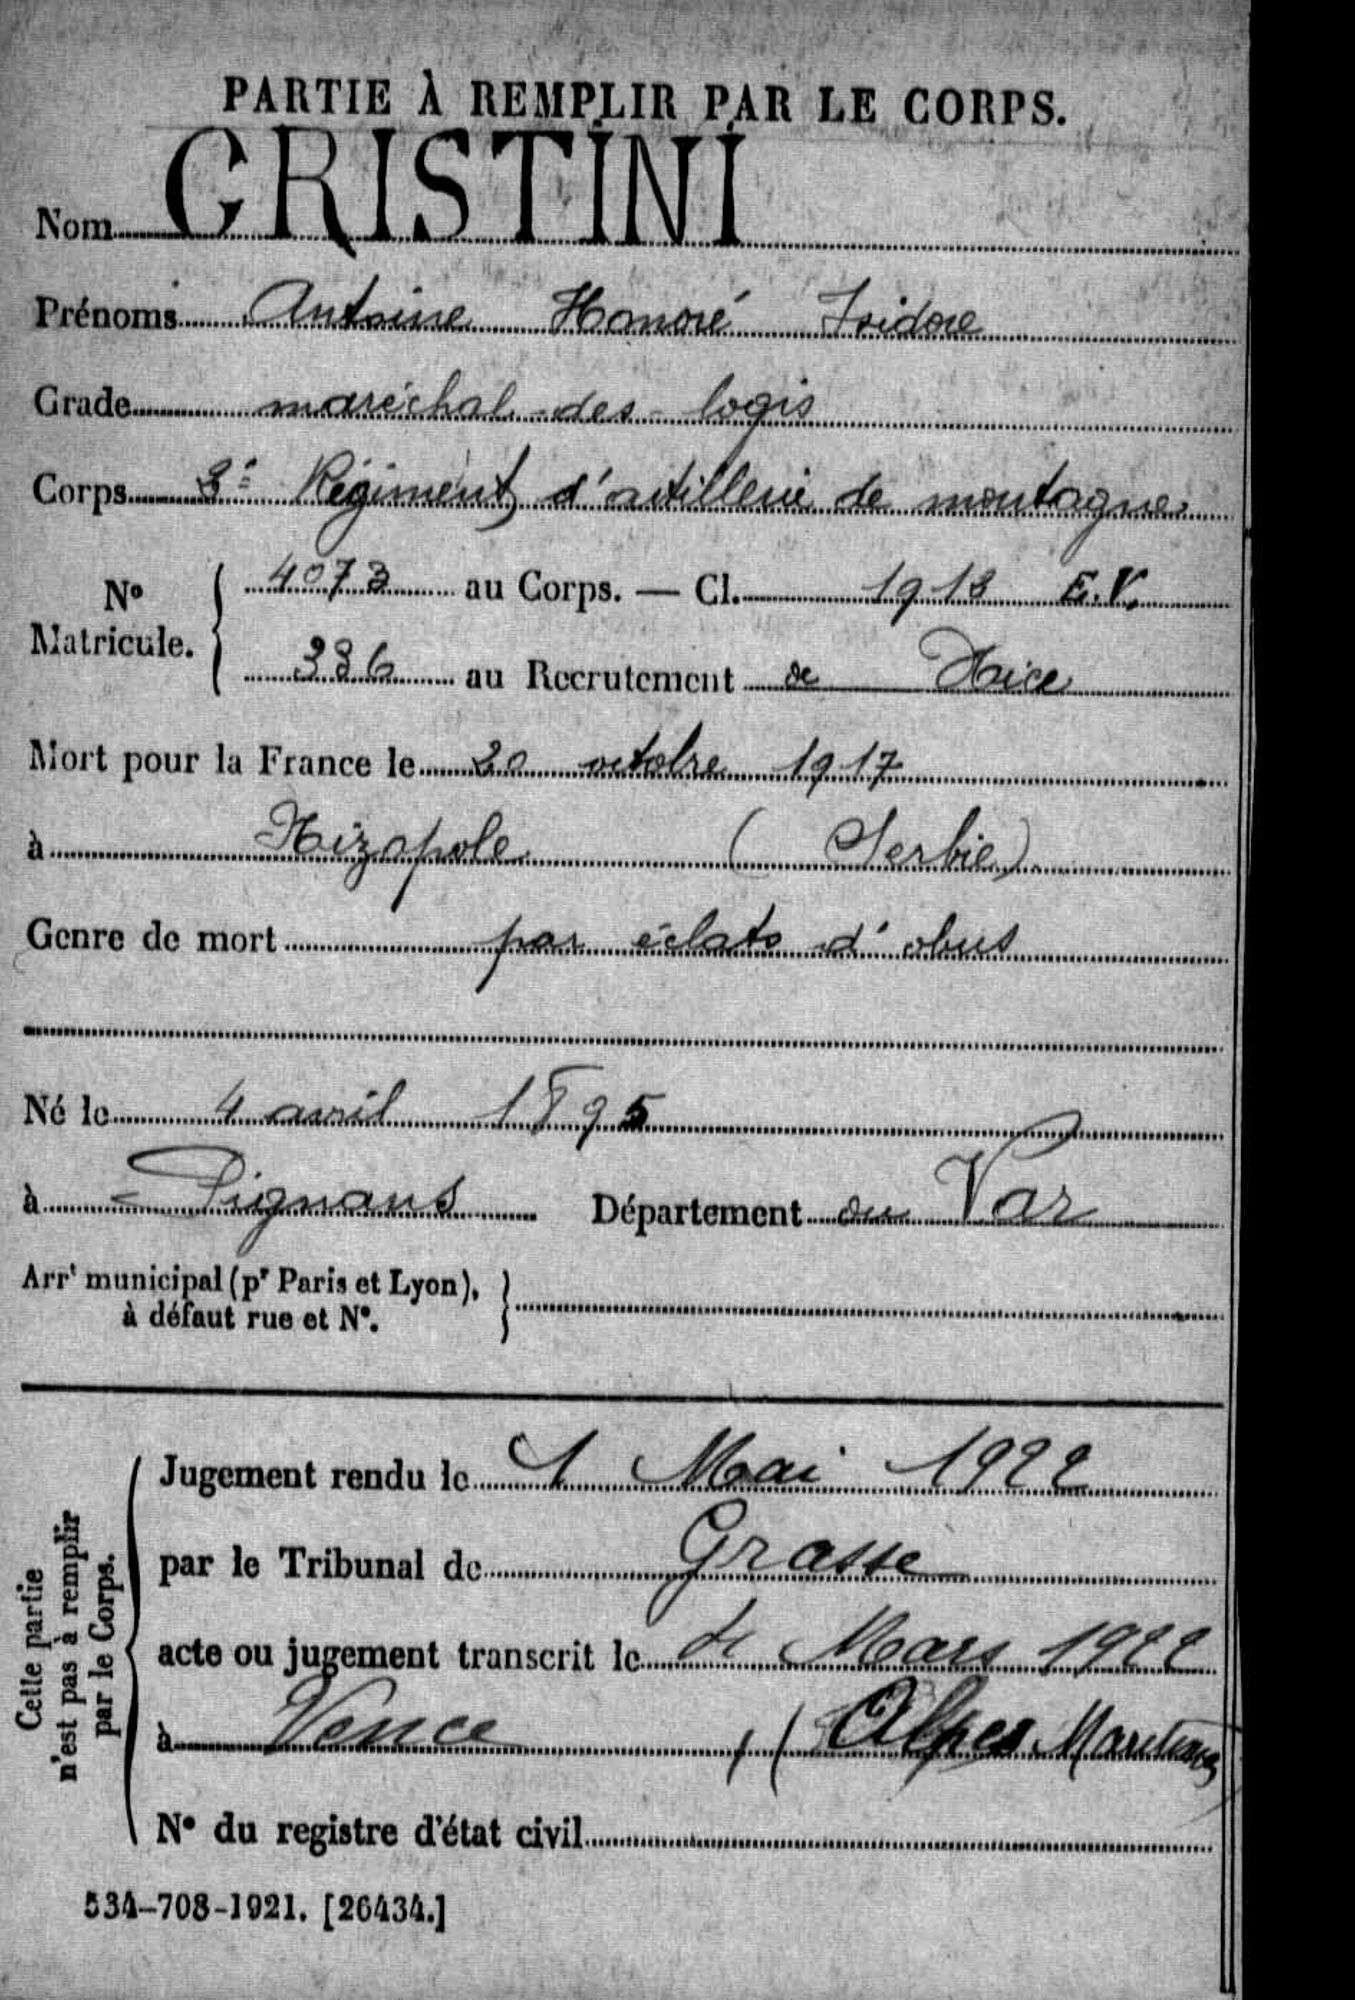 PARTIE À REMPLIR PAR LE CORPS.
Nom CRISTINI
Prénoms Antoine Honoré Isidore
Grade maréchal-des-logis
Corps 2è Régiment d'artillerie de montagne
Nº Matricule. { 4073 au Corps. — Cl. 1913 E.V.
336 au Recrutement de Nice
Mort pour la France le 20 octobre 1917
à Nizopole (Serbie)
Genre de mort par éclats d'obus
Né le 4 avril 1895
à Pignans Département du Var
Arrt municipal (pr Paris et Lyon),
à défaut rue et Nº. }
Cette partie
n'est pas à remplir
par le Corps.
Jugement rendu le 1 Mai 1922
par le Tribunal de Grasse
acte ou jugement transcrit le Mars 1922
à Vence, (Alpes Maritimes)
Nº du registre d'état civil
534-708-1921. [26434.]